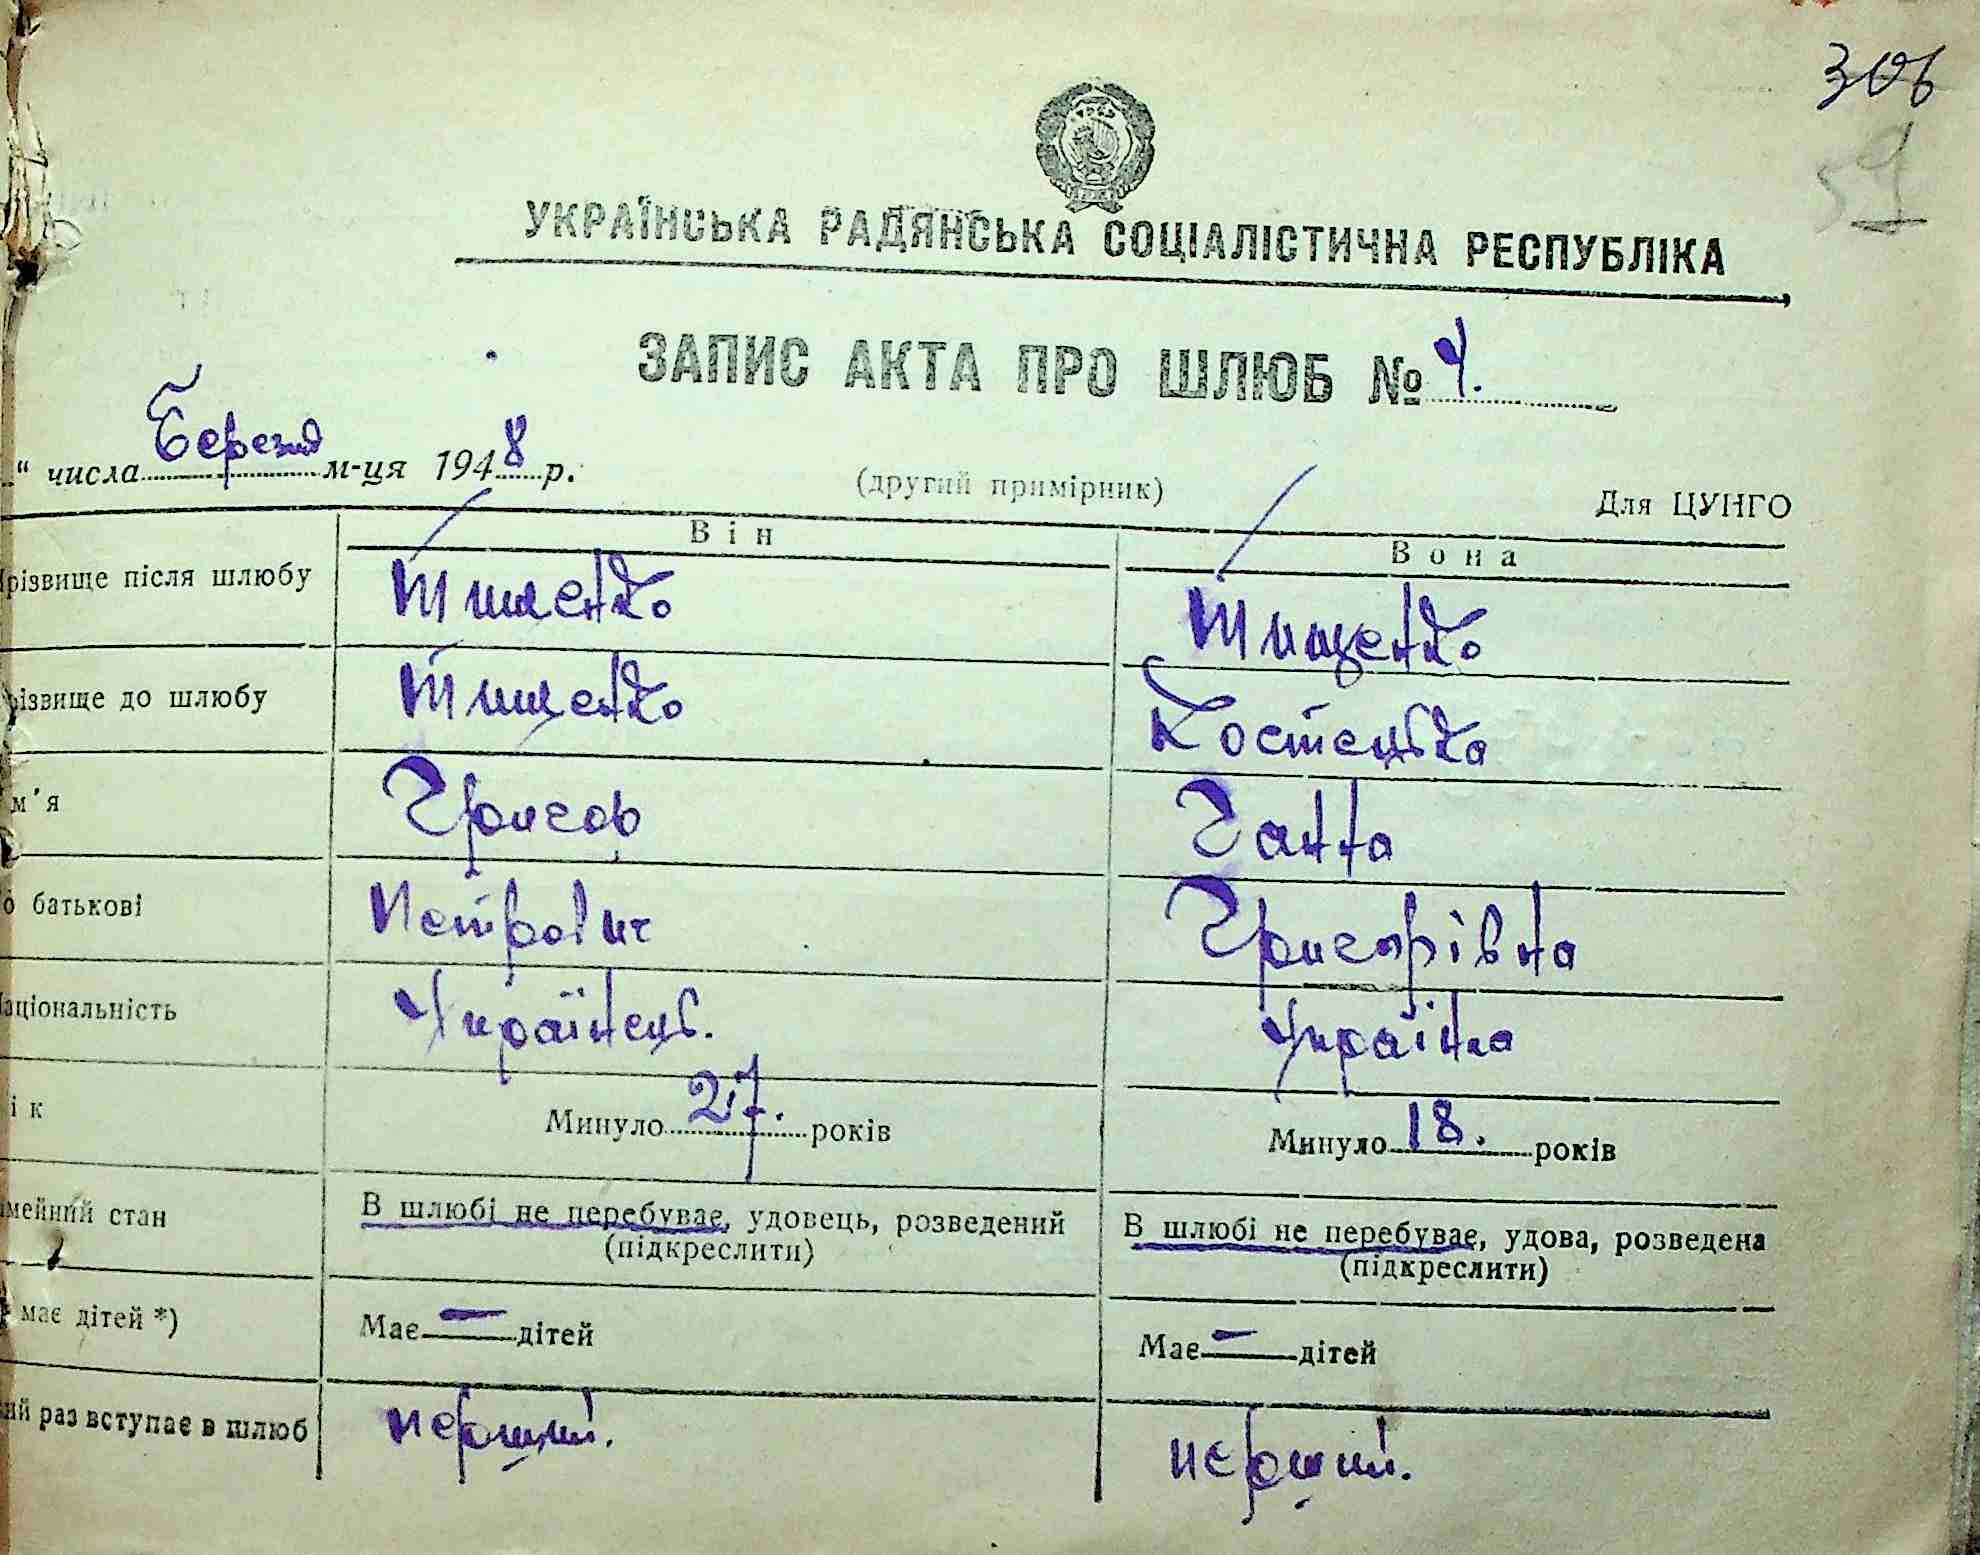 306
59
УКРАЇНСЬКА РАДЯНСЬКА СОЦІАЛІСТИЧНА РЕСПУБЛІКА
ЗАПИС АКТА ПРО ШЛЮБ № 4.
" числа Березня м-ця 1948 р.
(другий примірник)
Для ЦУНГО
Він Вона
різвище після шлюбу Тищенко Тищенко
різвище до шлюбу Тищенко Костецька
м'я Григор Ганна
о батькові Петрович Григорівна
аціональність Українець. Українка
ік Минуло 27. років Минуло 18. років
мейний стан В шлюбі не перебуває, удовець, розведений В шлюбі не перебуває, удова, розведена
(підкреслити) (підкреслити)
має дітей *) Має — дітей Має — дітей
ий раз вступає в шлюб перший. перший.